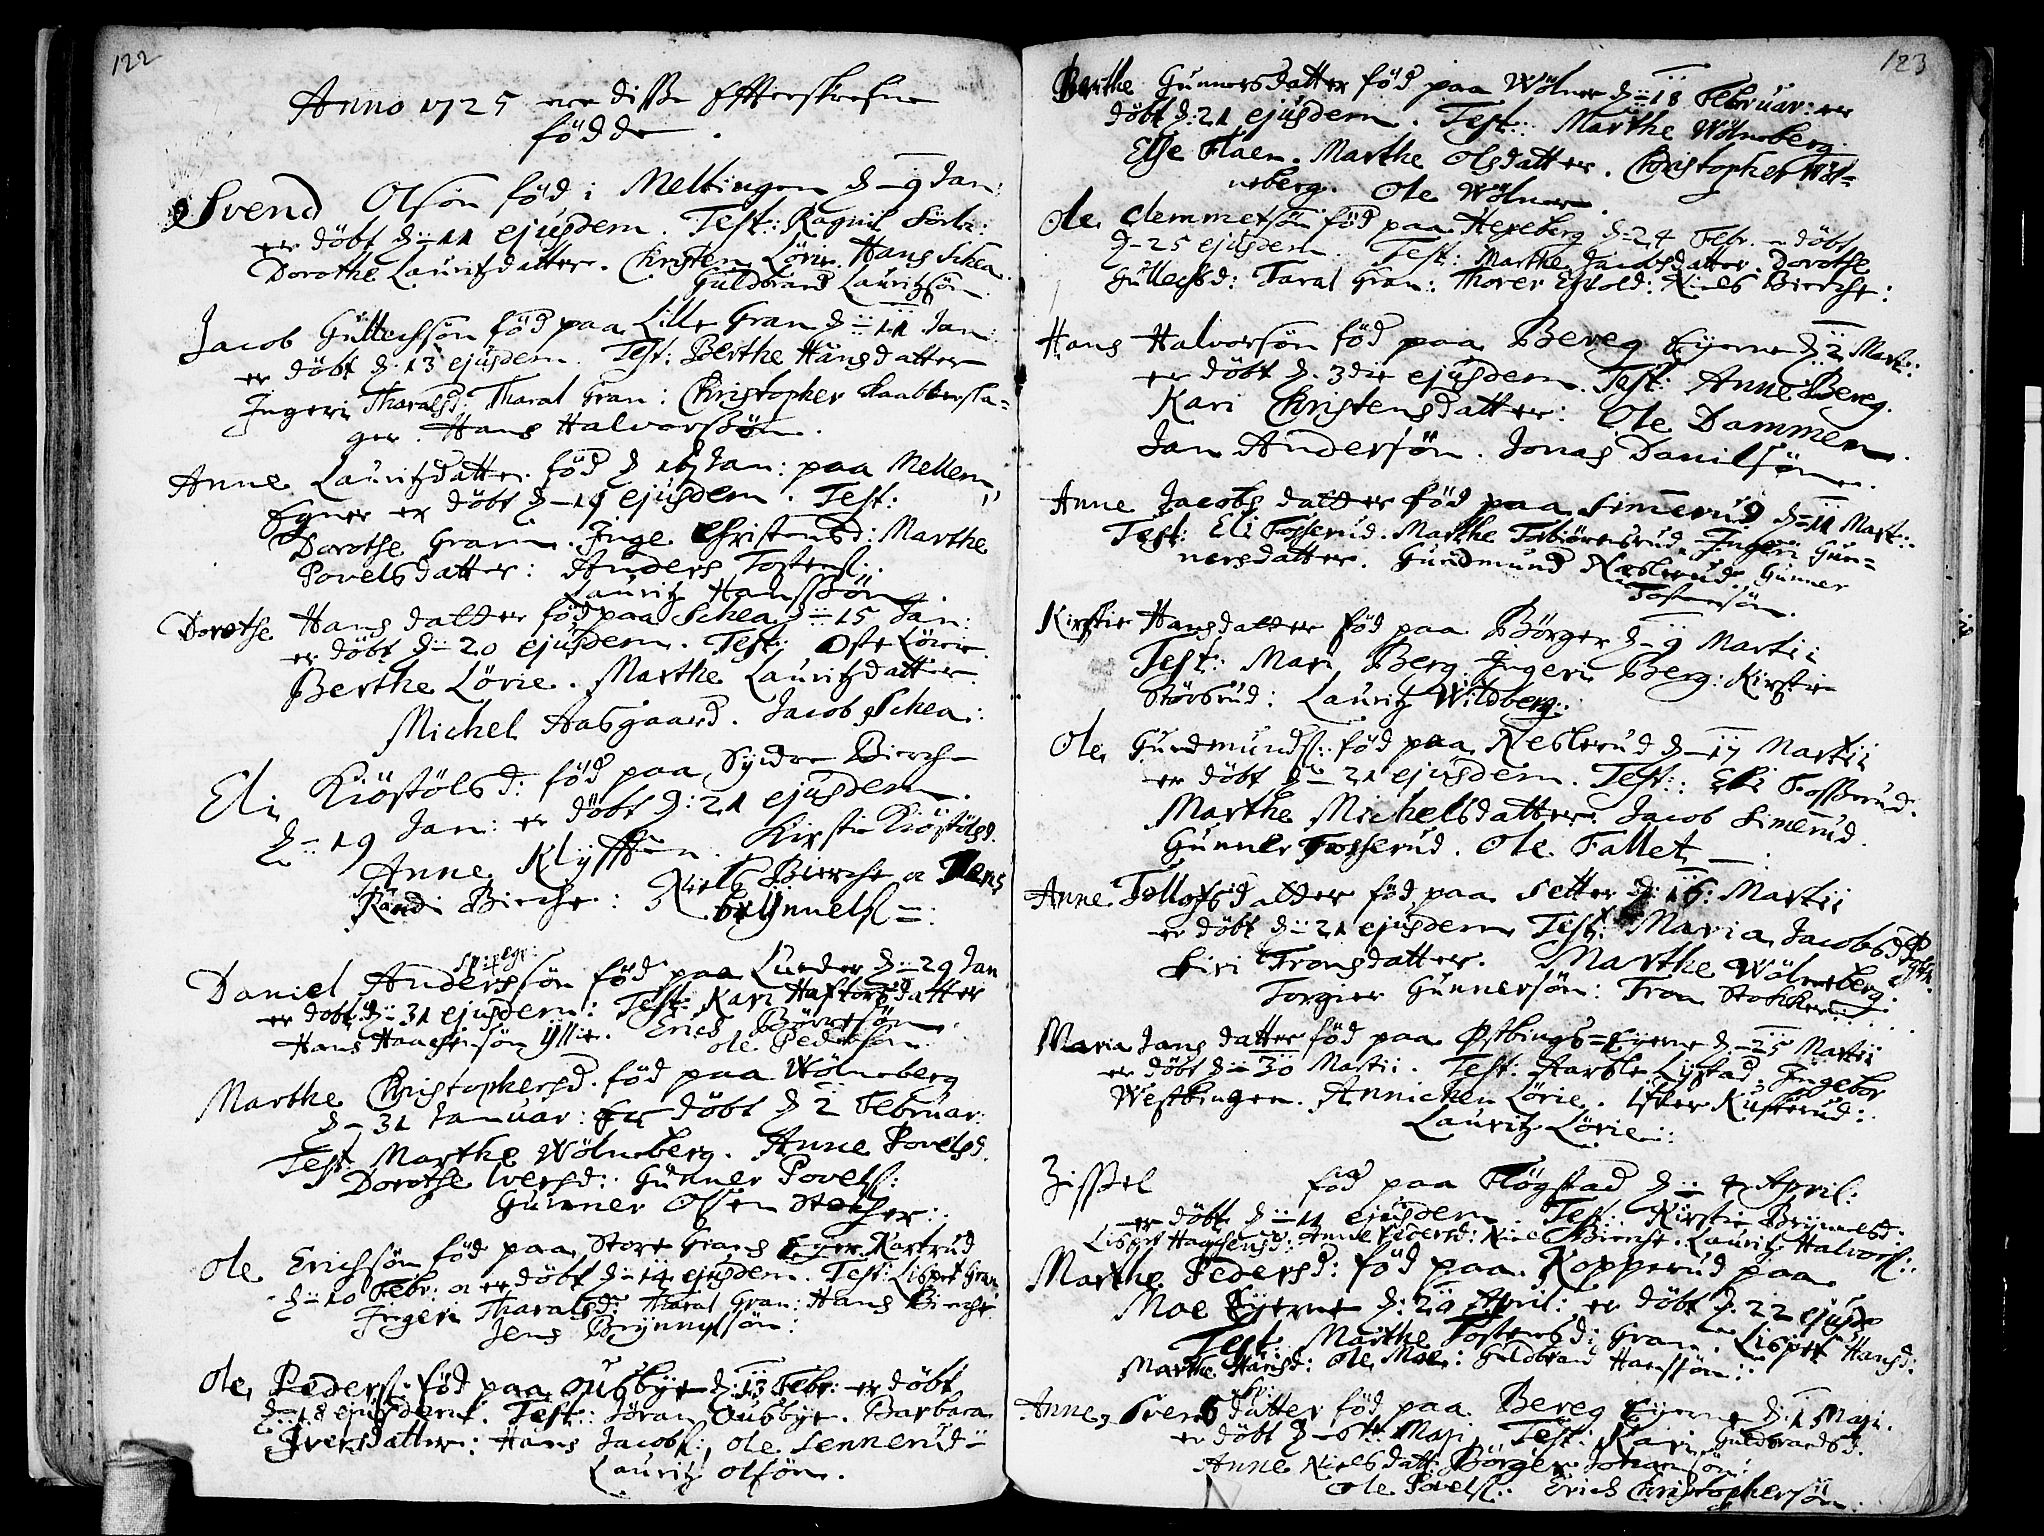 122
Anno 1725 ere disse Effterskrefne
födde.
Svend Olsön föd i Meltingen d 9 Jan:
er döbt d: 11 ejusdem. Test: Ragnil Sörli:
Dorothe Lauritzdatter. Christen Lörie. Hans Schea
Guldbrand Lauritzsön
Jacob Gullechsön föd paa Lille Gran d: 11 Jan:
er döbt d. 13 ejusdem. Test: Berthe Hansdatter
Ingeri Tharalsd: Tharal Gran: Christopher Raabbersla=
ger. Hans Halvorssön.
Anne Lauritzdatter föd d 16 Jan: paa Mellem
Eyner er döbt d 19 ejusdem. Test:
Dorothe Gran. Inge Christensd: Marthe
Povelsdatter: Anders Tostens:
Lauritz Hanssön
Dorothe Hansdatter föd paa Schea d: 15 Jan:
er döbt d: 20 ejusdem. Test: Oste Lörie
Berthe Lörie. Marthe Lauritzdatter
Michel Aasgaard. Jacob Schea:
Eli Kiöstölsd: föd paa Syndre Bierche
d: 19 Jan: er döbt d: 21 ejusdem.
Anne Klyfften. Kirstie Kiöstölsd.
Randi Bierche: Niels Bierche o Jens
Brynnels=:
Daniel Anderssön föd paa Lunder d: 29 Jan
er döbt d: 31 ejusdem: Test: Kari Haftorsdatter
Hans Haagensön Yllie. Erich Börresön
Ole Pedersön.
Marthe Christophersd. föd paa Wölneberg
d 31 Januar: Er döbt d 2 Februar:
Test: Marthe Wölneberg. Anne Povelsd.
Dorothe Iversd: Gunner Povels:
Gunner Olsen Stocher:
Ole Erichsön föd paa Store Grans Eyer Kortrud
d: 10 Febr: o er döbt d: 14 ejusdem. Test: Lispet Gran
Ingeri Tharalsd: Tharal Gran: Hans Bierche
Jens Brynnylsön:
Ole Peders: föd paa Ousbye d: 13 Febr: er döbt
d: 18 ejusdem. Test: Jöran Ousbye. Barbara
Iversdatter: Hans Jacobs: Ole Sennerud=
Lauritz Olsön.
123
Berthe Gunnersdatter föd paa Wölner d: 18 Februar: er
döbt d: 21 ejusdem. Test: Marthe Wölneberg.
Else Flaen. Marthe Olsdatter. Christopher Wöl=
neberg. Ole Wölner.
Ole Clemmetsön föd paa Hexeberg d 24 Febr. er döbt
d 25 ejusdem. Test: Marthe Jacobsdatter. Dorothe
Gullechsd: Taral Gran: Thorer Egvold: Niels Bierche:
Hans Halvorsön föd paa Bereg Eyerne d: 2 Mart:
er döbt d. 3die ejusdem. Test: Anne Bereg.
Kari Christensdatter: Ole Dammen.
Jan Andersön. Jonas Danilsön.
Anne Jacobsdatter föd paa Simerud d: 11 Mart:
Test: Eli Fosserud. Marthe Torbiörensrud. Ingeri Gun=
nersdatter. Gundmund Neslerud. Gunner
Tostensön.
Kirstie Hansdatter föd paa Börger d 9 Martii
Test: Mari Berg. Ingeri Berg: Kirstie
Störsrud: Lauritz Wildberg:
Ole Gundmunds: föd paa Neslerud d 17 Martii
er döbt d: 21 ejusdem. Test: Eli Fosserud.
Marthe Michelsdatter. Jacob Simerud
Gunner Fosserud. Ole Fallet.
Anne Tollofsdatter föd paa Setter d: 16: Martii
er döbt d: 21 ejusdem Test: Maria Jacobsd
Siri Tronsdatter. Marthe Wölneberg.
Torgier Gunnersön: Tron Stocker:
Maria Jansdatter föd paa Østbings=Eyerne d 25 Martii
er döbt d: 30 Martii. Test: Aarsle Lystad. Ingebor
Westbingen. Annichen Lörie. Ifver Kusserud:
Lauritz Lörie:
Zissel föd paa Flögstad d: 4 April:
er döbt d: 11 ejusdem Test: Kirstie Brynnelsd:
Lispet Haagensd: Anne Pedersd: Niels Bierche. Lauritz Halvors:
Marthe Pedersd: föd paa Kopperud paa
Moe Eyerne d: 20 April: er döbt d: 22 ejusd
Test: Marthe Tostensd: Gran. Lispet Hansd:
Marthe Hansd: Ole Moe: Guldbrand Hanssön:
Anne Svensdatter föd paa Bereg Eyerne d: 1 Maji.
er döbt d 6te Maji. Test: Kari Guldbrandsd.
Anne Nielsdatt: Börger Johansön:
Ole Povels: Erich Christophersön.